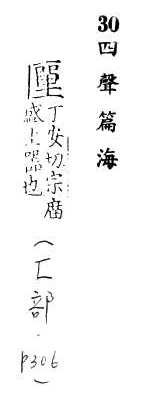 30
四聲篇海
匰
丁安切宗廟
盛主器也
(匚部.p306)